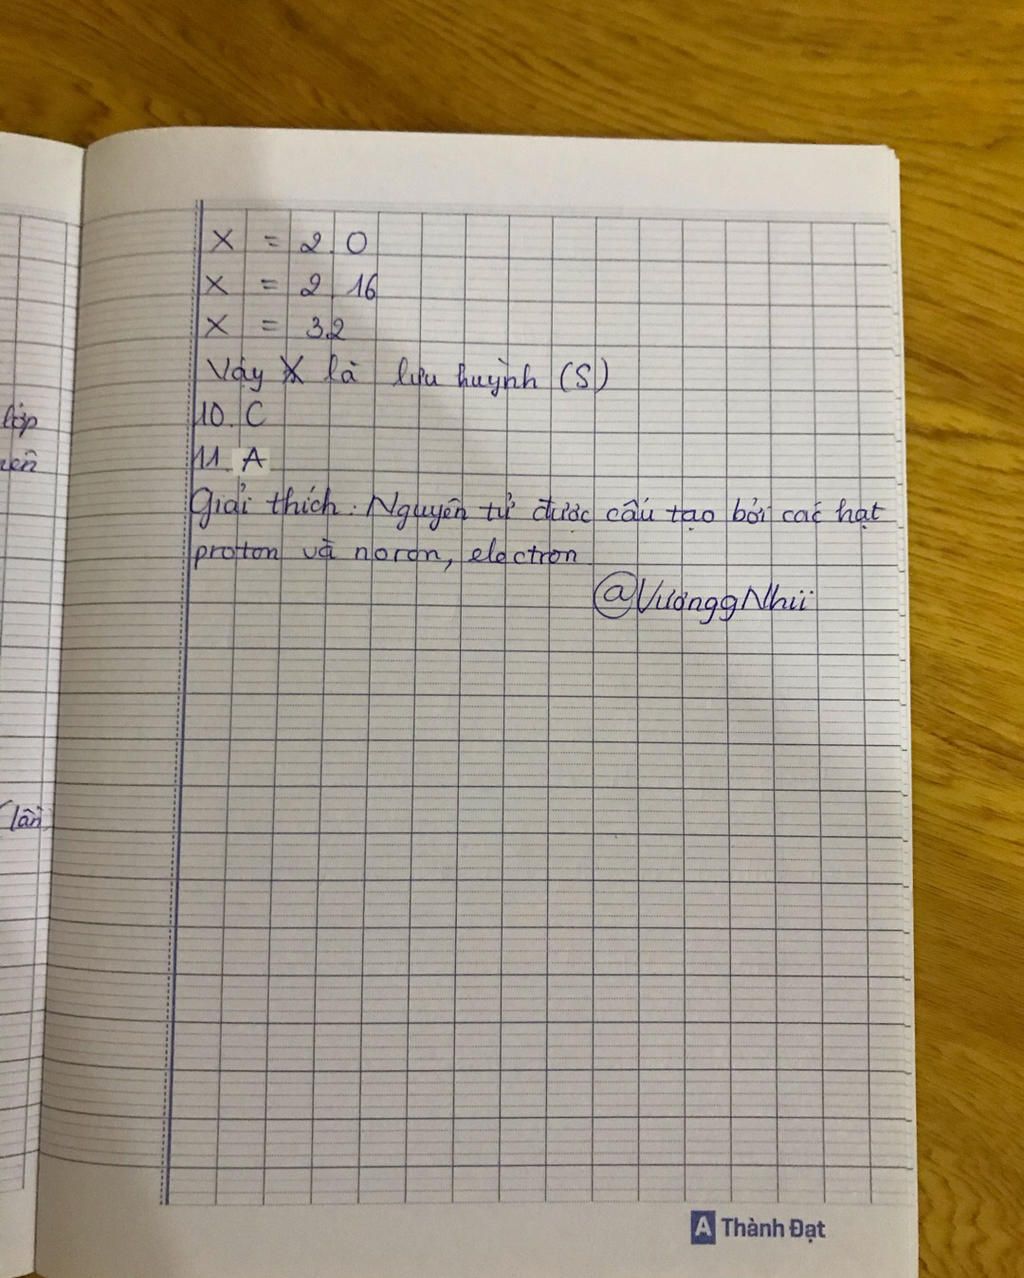 X = 2.O
X = 2.16
X = 32
Vậy X là lưu huỳnh (S)
10. C
11. A
Giải thích: Nguyên tử được cấu tạo bởi các hạt
protton và noron, electron
@VươnggNhii
lớp
(lần)
A Thành Đạt